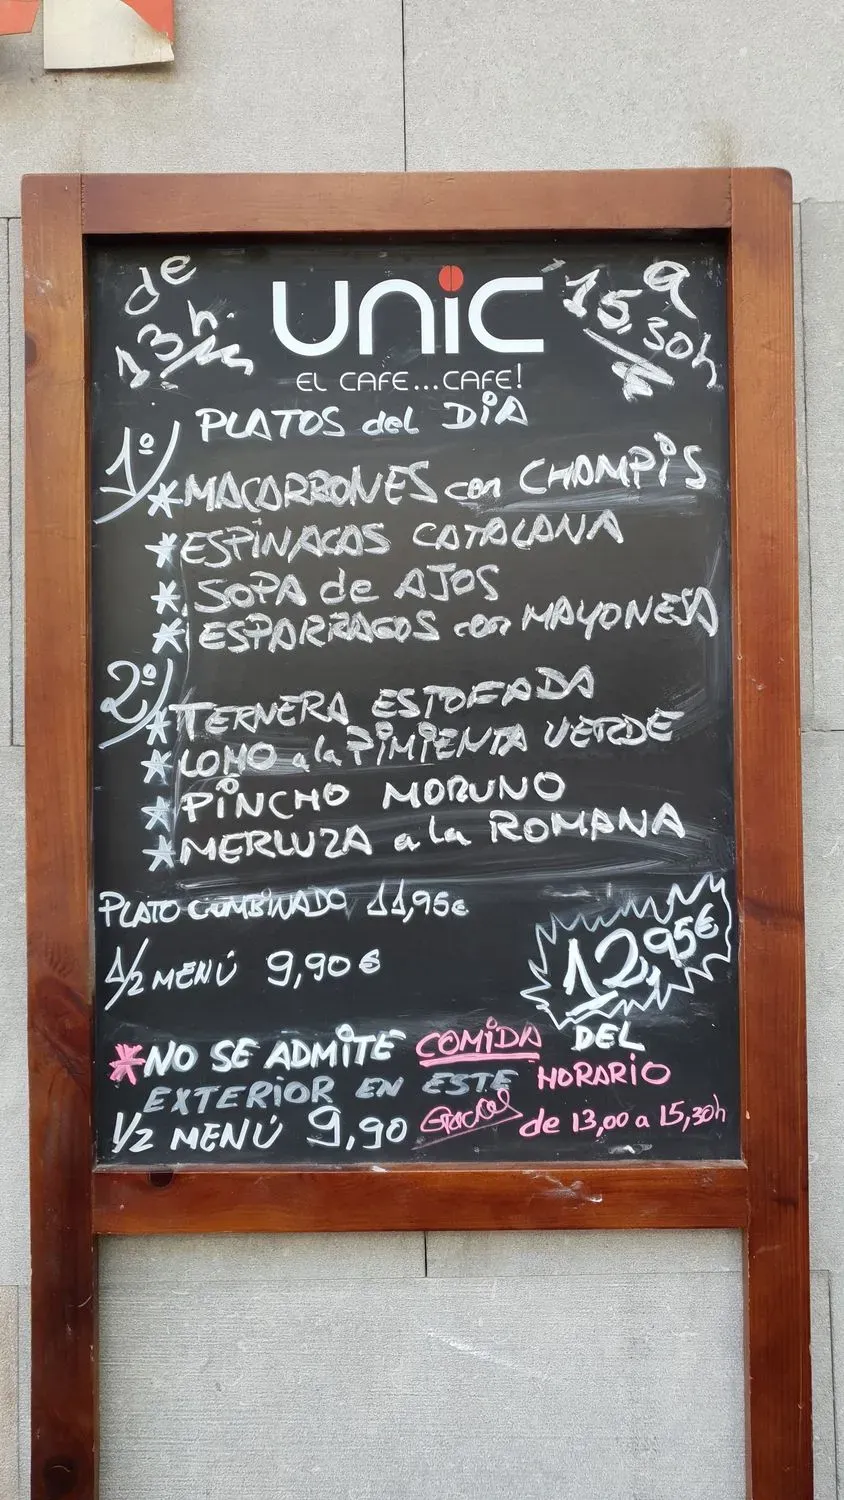 de
13h.
UNIC
a
15,30h
EL CAFE...CAFE!
PLATOS del DIA
1º
*MACARRONES con CHAMPIS
*ESPINACAS CATALANA
*SOPA de AJOS
*ESPARRAGOS con MAYONESA
2º
*TERNERA ESTOFADA
*LOMO a la PIMIENTA VERDE
*PINCHO MORUNO
*MERLUZA a la ROMANA
PLATO COMBINADO 11,95€
12,95€
1/2 MENÚ 9,90€
*NO SE ADMITE COMIDA DEL
EXTERIOR EN ESTE HORARIO
1/2 MENÚ 9,90 Gracias de 13,00 a 15,30h